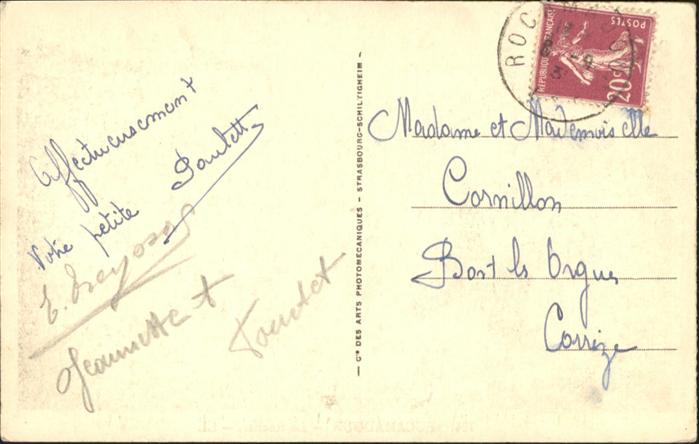 Affectueusement
Votre petite Paulette
Jeannette t
Cie DES ARTS PHOTOMECANIQUES - STRASBOURG-SCHILTIGHEIM -
ROC
REPUBLIQUE FRANCAISE
POSTES
20c
Madame et Mademoiselle
Cornillon
Bort les Orgues
Corrèze